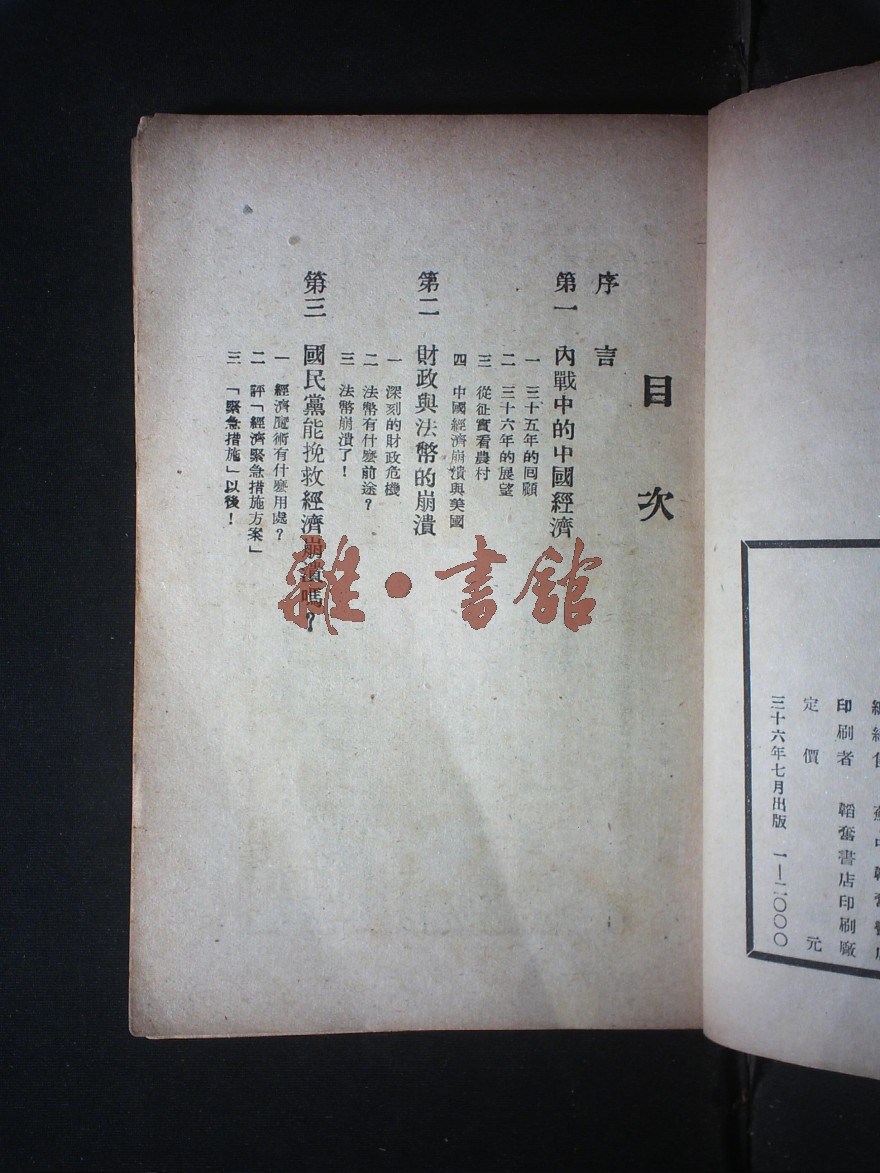 目次
序言
第一 內戰中的中國經濟
一 三十五年的囘顧
二 三十六年的展望
三 從征實看農村
四 中國經濟崩潰與美國
第二 財政與法幣的崩潰
一 深刻的財政危機
二 法幣有什麽前途?
三 法幣崩潰了!
第三 國民黨能挽救經濟崩潰嗎?
一 經濟魔術有什麽用處?
二 評「經濟緊急措施方案」
三 「緊急措施」以後!
雜·書館
印刷者 韜奮書店印刷廠
定價 元
三十六年七月出版 一—二〇〇〇